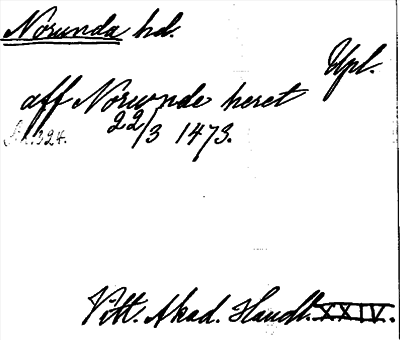 Norunda hd.
Upl.
aff Norwnde heret
22/3 1473.
324.
Vitt. Akad. Handl. XXIV.